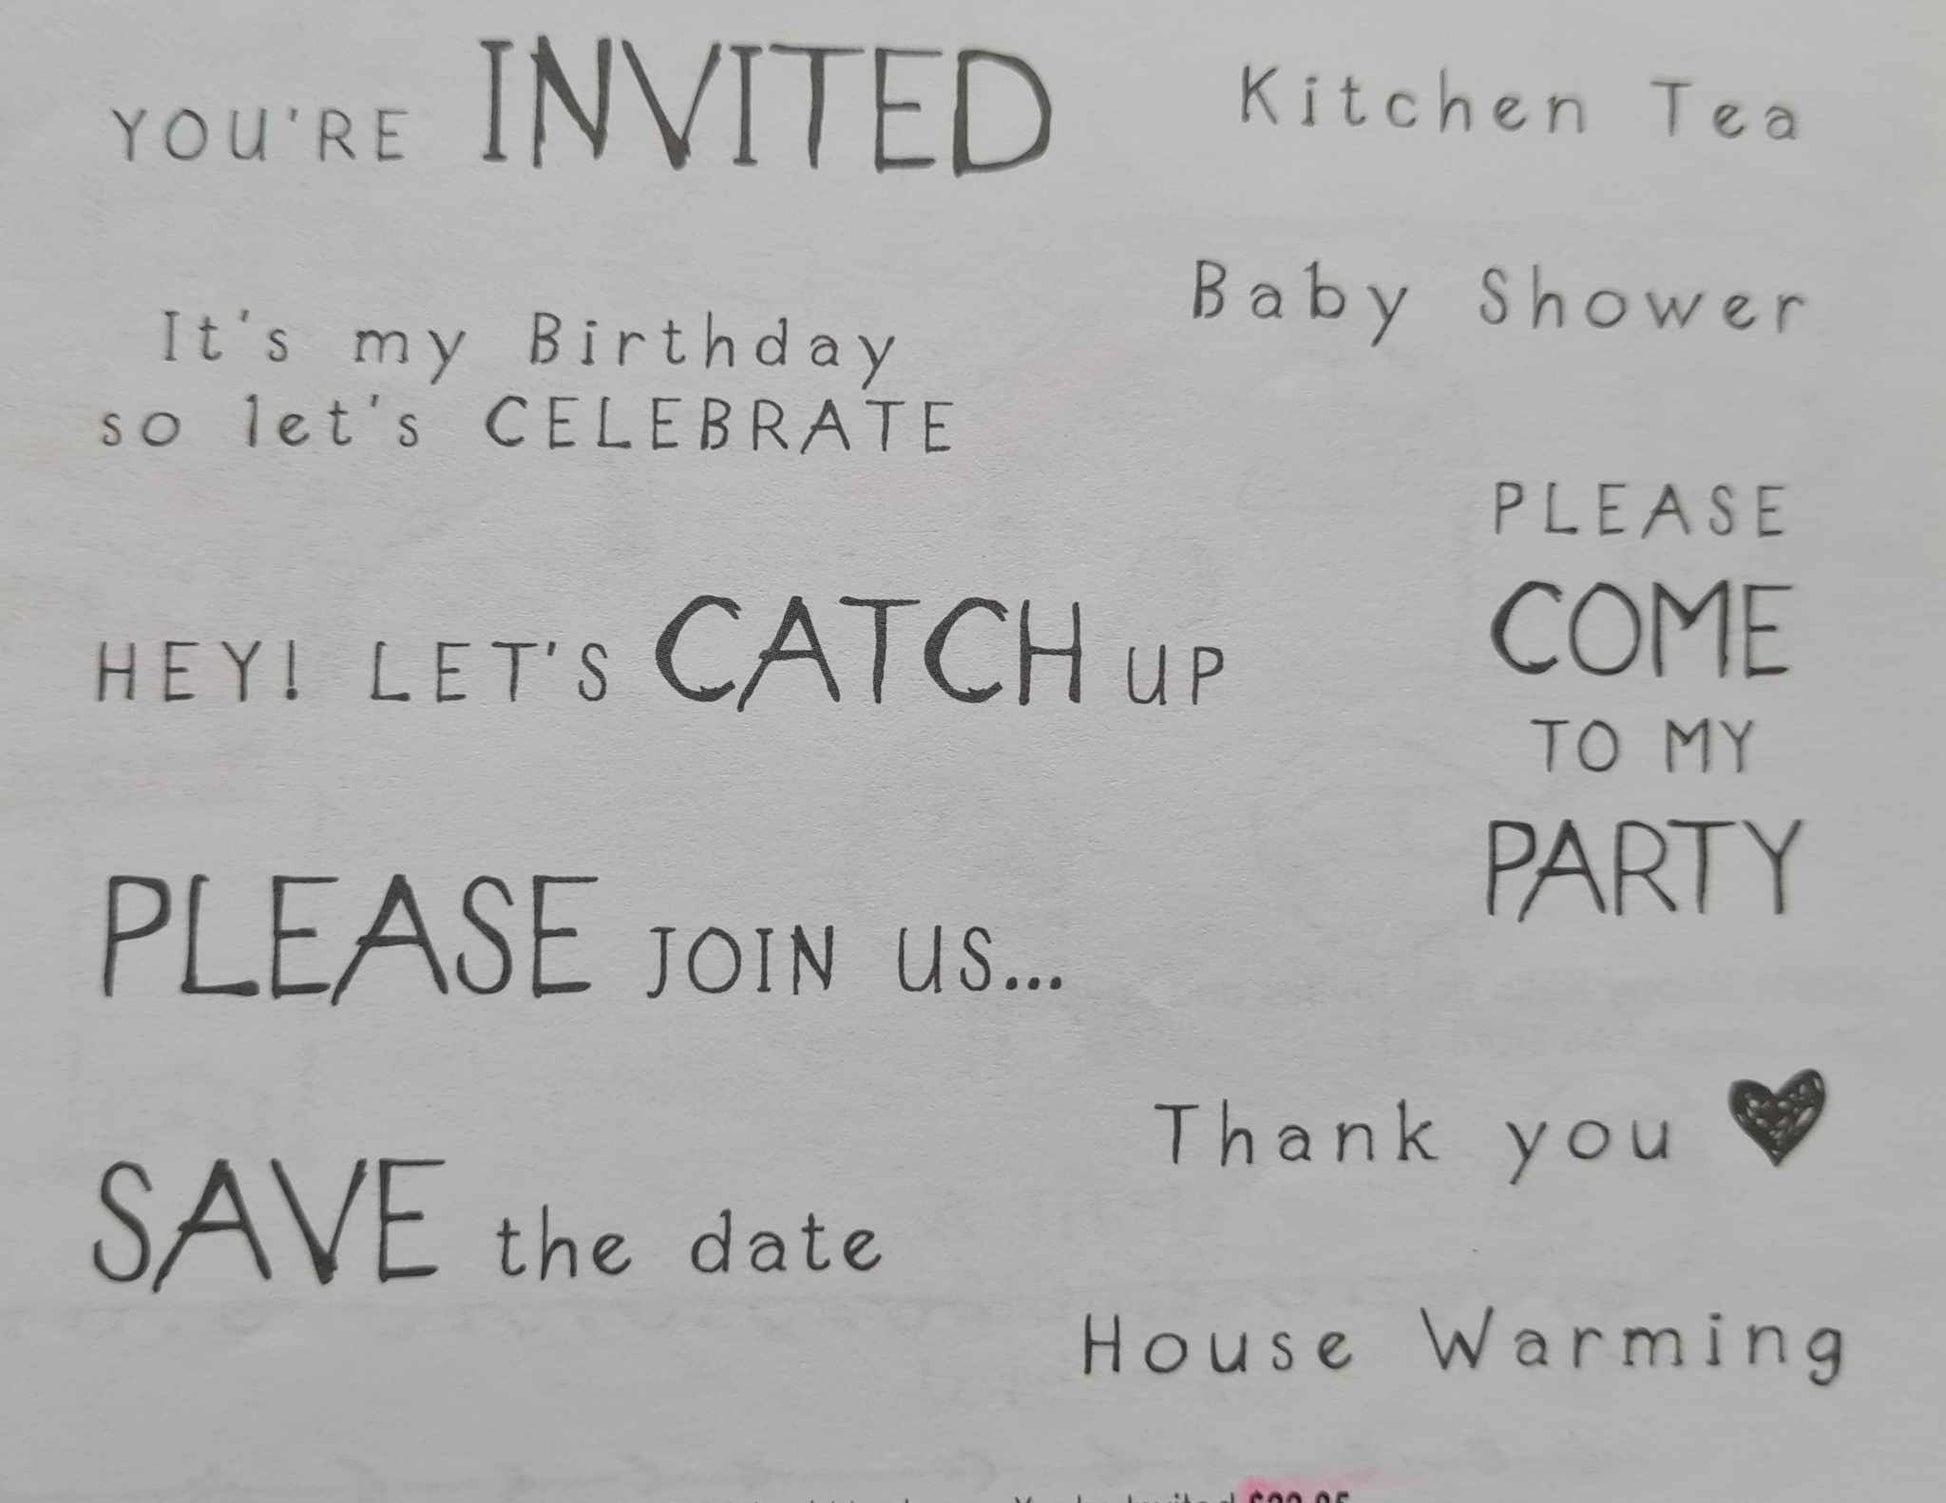 YOU'RE INVITED
Kitchen Tea
Baby Shower
It's my Birthday
so let's CELEBRATE
PLEASE
COME
TO MY
PARTY
HEY! LET'S CATCH UP
PLEASE JOIN US...
Thank you
SAVE the date
House Warming